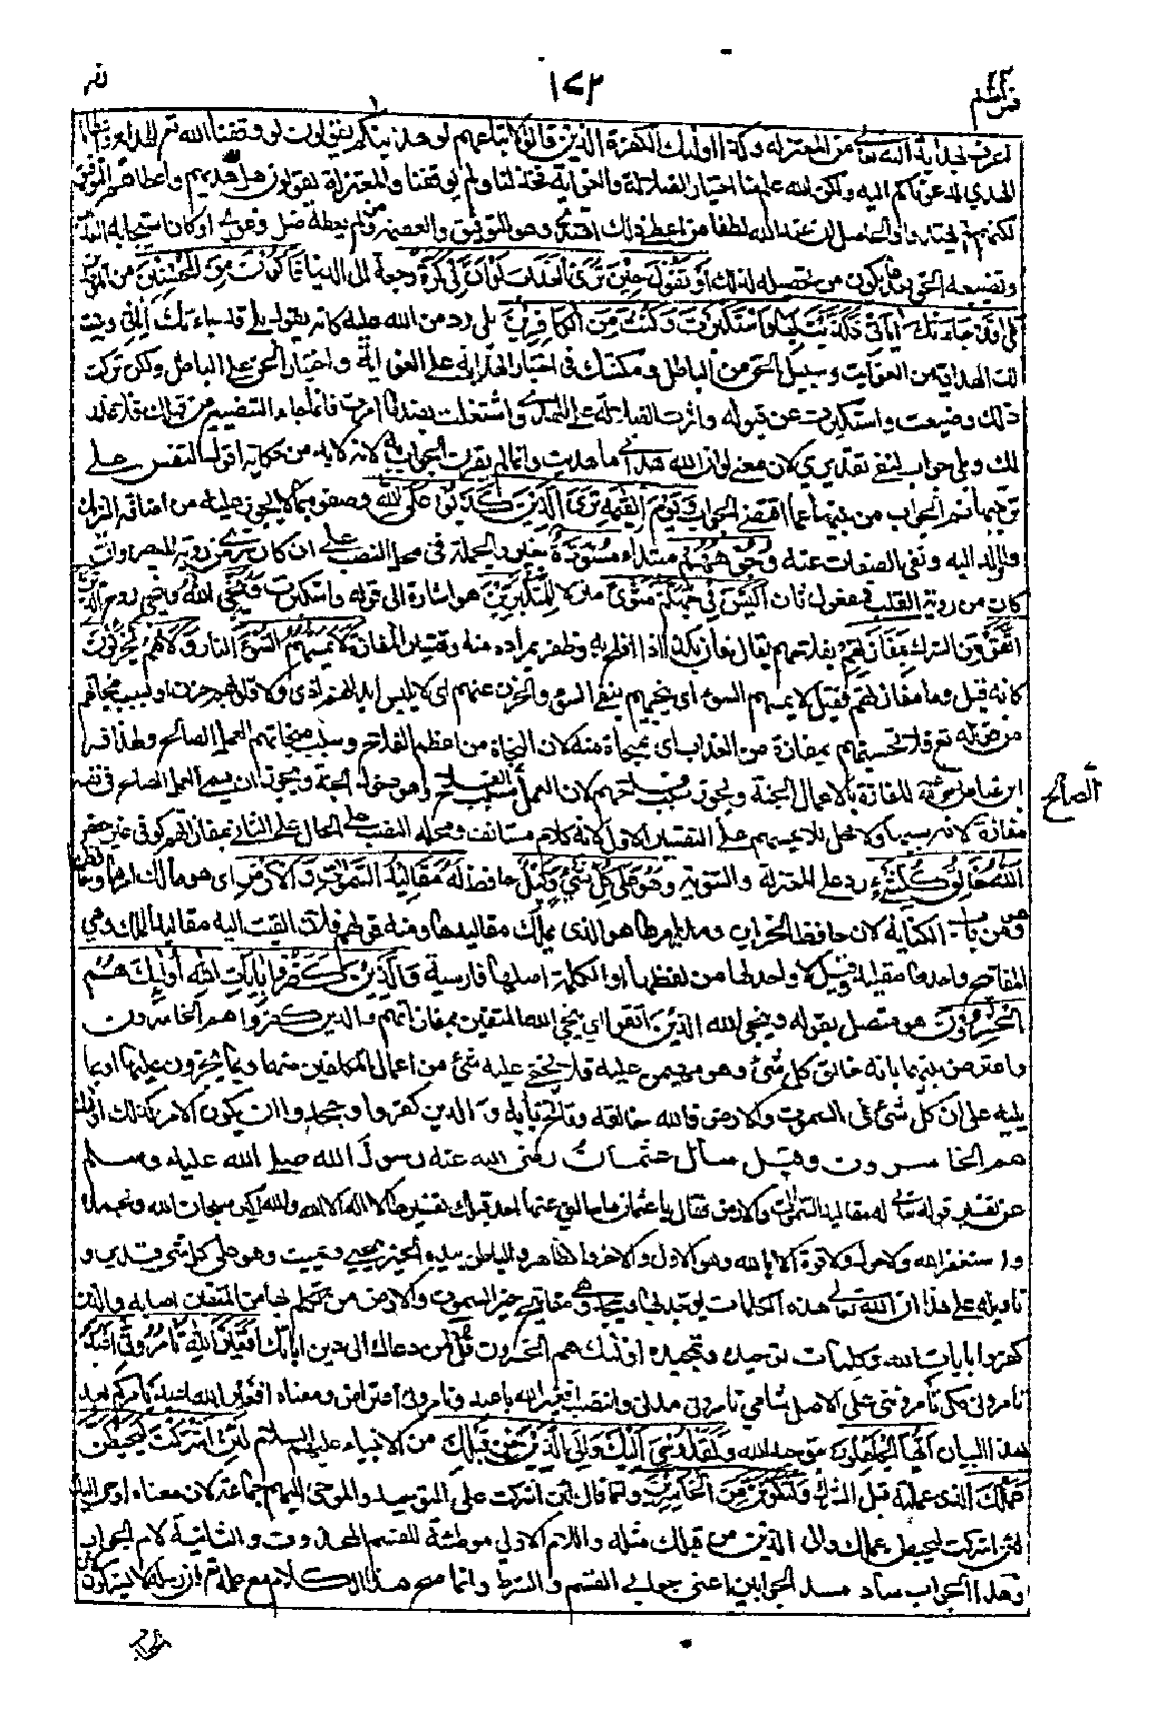 ١٧٢
اعرف بهداية الله تعالى من المعتزلة وكذا اولئك الكفرة الذين قالوا لاتباعهم لو هدينكم يقولون لو وفقنا الله
الهدي لدعوناكم اليه ولكن الله علم منا اختيار الضلالة والغواية فخذلنا ولم يوفقنا والمعتزلة يقولون بل هديهم واعطاهم التوفيق
لكنهم لم يهتدوا والحاصل ان عند الله لطفا من اعطي ذلك اهتدى وهو التوفيق والعصمة ومن لم يعطه ضل وغوى وكان استيجابه العذاب
وتضييعه الحق بعد ما يكون من تحصيله لذلك اَوْ تَقُوْلَ حِيْنَ تَرَى الْعَذَابَ لَوْ اَنَّ لِيْ كَرَّةً رجعة الى الدنيا فَاَكُوْنَ مِنَ الْمُحْسِنِيْنَ من
بَلٰى قَدْ جَآءَتْكَ اٰيَاتِيْ فَكَذَّبْتَ بِهَا وَاسْتَكْبَرْتَ وَكُنْتَ مِنَ الْكَافِرِيْنَ بلى رد من الله عليه كانه يقول بلى قد جاءتك اياتي وبينت
لك الهداية من الغواية وسبيل الحق من الباطل ومكنتك من اختيار الهداية على الغواية واختيار الحق على الباطل ولكن تركت
ذلك وضيعت واستكبرت عن قبوله واثرت الضلالة على الهدى واشتغلت بضد ما امرت فانما جاء التضييع من قبلك فلا عذر
لك وبلى جواب لنفي تقديري لان معنى لو ان الله هداني ما هديت وانما لم يقرن الجواب به لانه لا بد من حكاية اقوال النفس على
ترتيبها ثم الجواب من بينها عما اقتضى الجواب وَيَوْمَ الْقِيٰمَةِ تَرَى الَّذِيْنَ كَذَبُوْا عَلَى اللّٰهِ وصفوه بما لا يجوز عليه من اضافة الشريك
والولد اليه ونفي الصفات عنه وُجُوْهُهُمْ مبتدأ مُسْوَدَّةٌ خبر والجملة في محل النصب على الحال ان كان ترى من رؤية البصر وان
كان من رؤية القلب فمفعول ثان اَلَيْسَ فِيْ جَهَنَّمَ مَثْوًى منزل لِلْمُتَكَبِّرِيْنَ هو اشارة الى قوله واستكبرت وَيُنَجِّي اللّٰهُ وينجي روح الَّذِيْنَ
اتَّقَوْا من الشرك بِمَفَازَتِهِمْ بفلاحهم يقال فاز بكذا اذا افلح به وظفر بمراده منه وتفسير المفازة لَا يَمَسُّهُمُ السُّوْءُ النار وَلَا هُمْ يَحْزَنُوْنَ
كانه قيل وما مفازتهم فقيل لا يمسهم السوء اى ينجيهم بنفي السوء والحزن عنهم اى لا يمس ابدانهم اذى ولا قلوبهم حزن او بسبب منجاتهم
من قوله تعالى فلا تحسبنهم بمفازة من العذاب اى بمنجاة منه لان النجاة من اعظم الفلاح وسبب منجاتهم العمل الصالح ولهذا فسر
ابن عباس رضي الله عنه المفازة بالاعمال الحسنة ويجوز بسبب فلاحهم لان العمل الصالح سبب الفلاح وهو دخول الجنة ويجوز ان يسمى العمل الصالح في نفسه
مفازة لانه سببها ولا محل للا يمسهم على التفسير الاول لانه كلام مستانف ومحله النصب على الحال على الثاني بمفازاتهم كوفي غير حفص
اَللّٰهُ خَالِقُ كُلِّ شَيْءٍ رد على المعتزلة والثنوية وَهُوَ عَلٰى كُلِّ شَيْءٍ وَّكِيْلٌ حافظ لَهٗ مَقَالِيْدُ السَّمٰوٰتِ وَالْاَرْضِ اى هو مالك امرها وحافظها
وهو من باب الكناية لان حافظ الخزائن ومدبر امرها هو الذى يملك مقاليدها ومنه قولهم فلان القيت اليه مقاليد الملك وهي
المفاتيح واحدها مقليد وقيل لا واحد لها من لفظها والكلمة اصلها فارسية وَالَّذِيْنَ كَفَرُوْا بِاٰيٰتِ اللّٰهِ اُولٰٓئِكَ هُمُ
الْخٰسِرُوْنَ هو متصل بقوله وينجى الله الذين اتقوا اى ينجي الله المتقين بمفازتهم والذين كفروا هم الخاسرون
واعترض بينهما بانه خالق كل شئ وهو مهيمن عليه فلا يخفى عليه شئ من اعمال المكلفين منها وبما يجزون عليها او بما
يليه على ان كل شئ في السموت والارض فالله خالقه وفاتح بابه والذين كفروا وجحدوا ان يكون الامر كذلك اولئك
هم الخاسرون وقيل سأل عثمان رضى الله عنه رسول الله صلى الله عليه وسلم
عن تفسير قوله تعالى له مقاليد السموات والارض فقال يا عثمان ما سالني عنها احد قبلك تفسيرها لا اله الا الله والله اكبر سبحان الله وبحمده
واستغفر الله ولا حول ولا قوة الا بالله وهو الاول والاخر والظاهر والباطن بيده الخير يحيى ويميت وهو على كل شئ قدير و
تاويله على هذا ان الله تعالى هذه الكلمات يوحد بها ويمجد وهي مفاتيح خير السموت والارض من تكلم بها من المتقين اصابه والذين
كفروا بايات الله وكلمات توحيده وتمجيده اولئك هم الخسرون قُلْ لمن دعاك الى دين ابائك اَفَغَيْرَ اللّٰهِ تَاْمُرُوْٓنِّيْٓ اَعْبُدُ
تامروني مكي تأمرونني على الاصل شامي تامروني مدني وانتصب افغير الله باعبد وتامروني اعتراض ومعناه افغير الله اعبد بامركم بعد
هذا البيان اَيُّهَا الْجٰهِلُوْنَ بتوحيد الله وَلَقَدْ اُوْحِيَ اِلَيْكَ وَاِلَى الَّذِيْنَ مِنْ قَبْلِكَ من الانبياء عليهم السلام لَئِنْ اَشْرَكْتَ لَيَحْبَطَنَّ
عَمَلُكَ الذى عملته قبل الشرك وَلَتَكُوْنَنَّ مِنَ الْخَاسِرِيْنَ وانما قال لئن اشركت على التوحيد والموحى اليهم جماعة لان معناه اوحى اليك
لئن اشركت ليحبطن عملك والى الذين من قبلك مثله واللام الاولى موطئة للقسم المحذوف والثانية لام الجواب
وهذا الجواب ساد مسد الجوابين اعنى جوابى القسم والشرط وانما صح هذا الكلام مع علمه تعالى بان رسله لا يشركون
الصالح